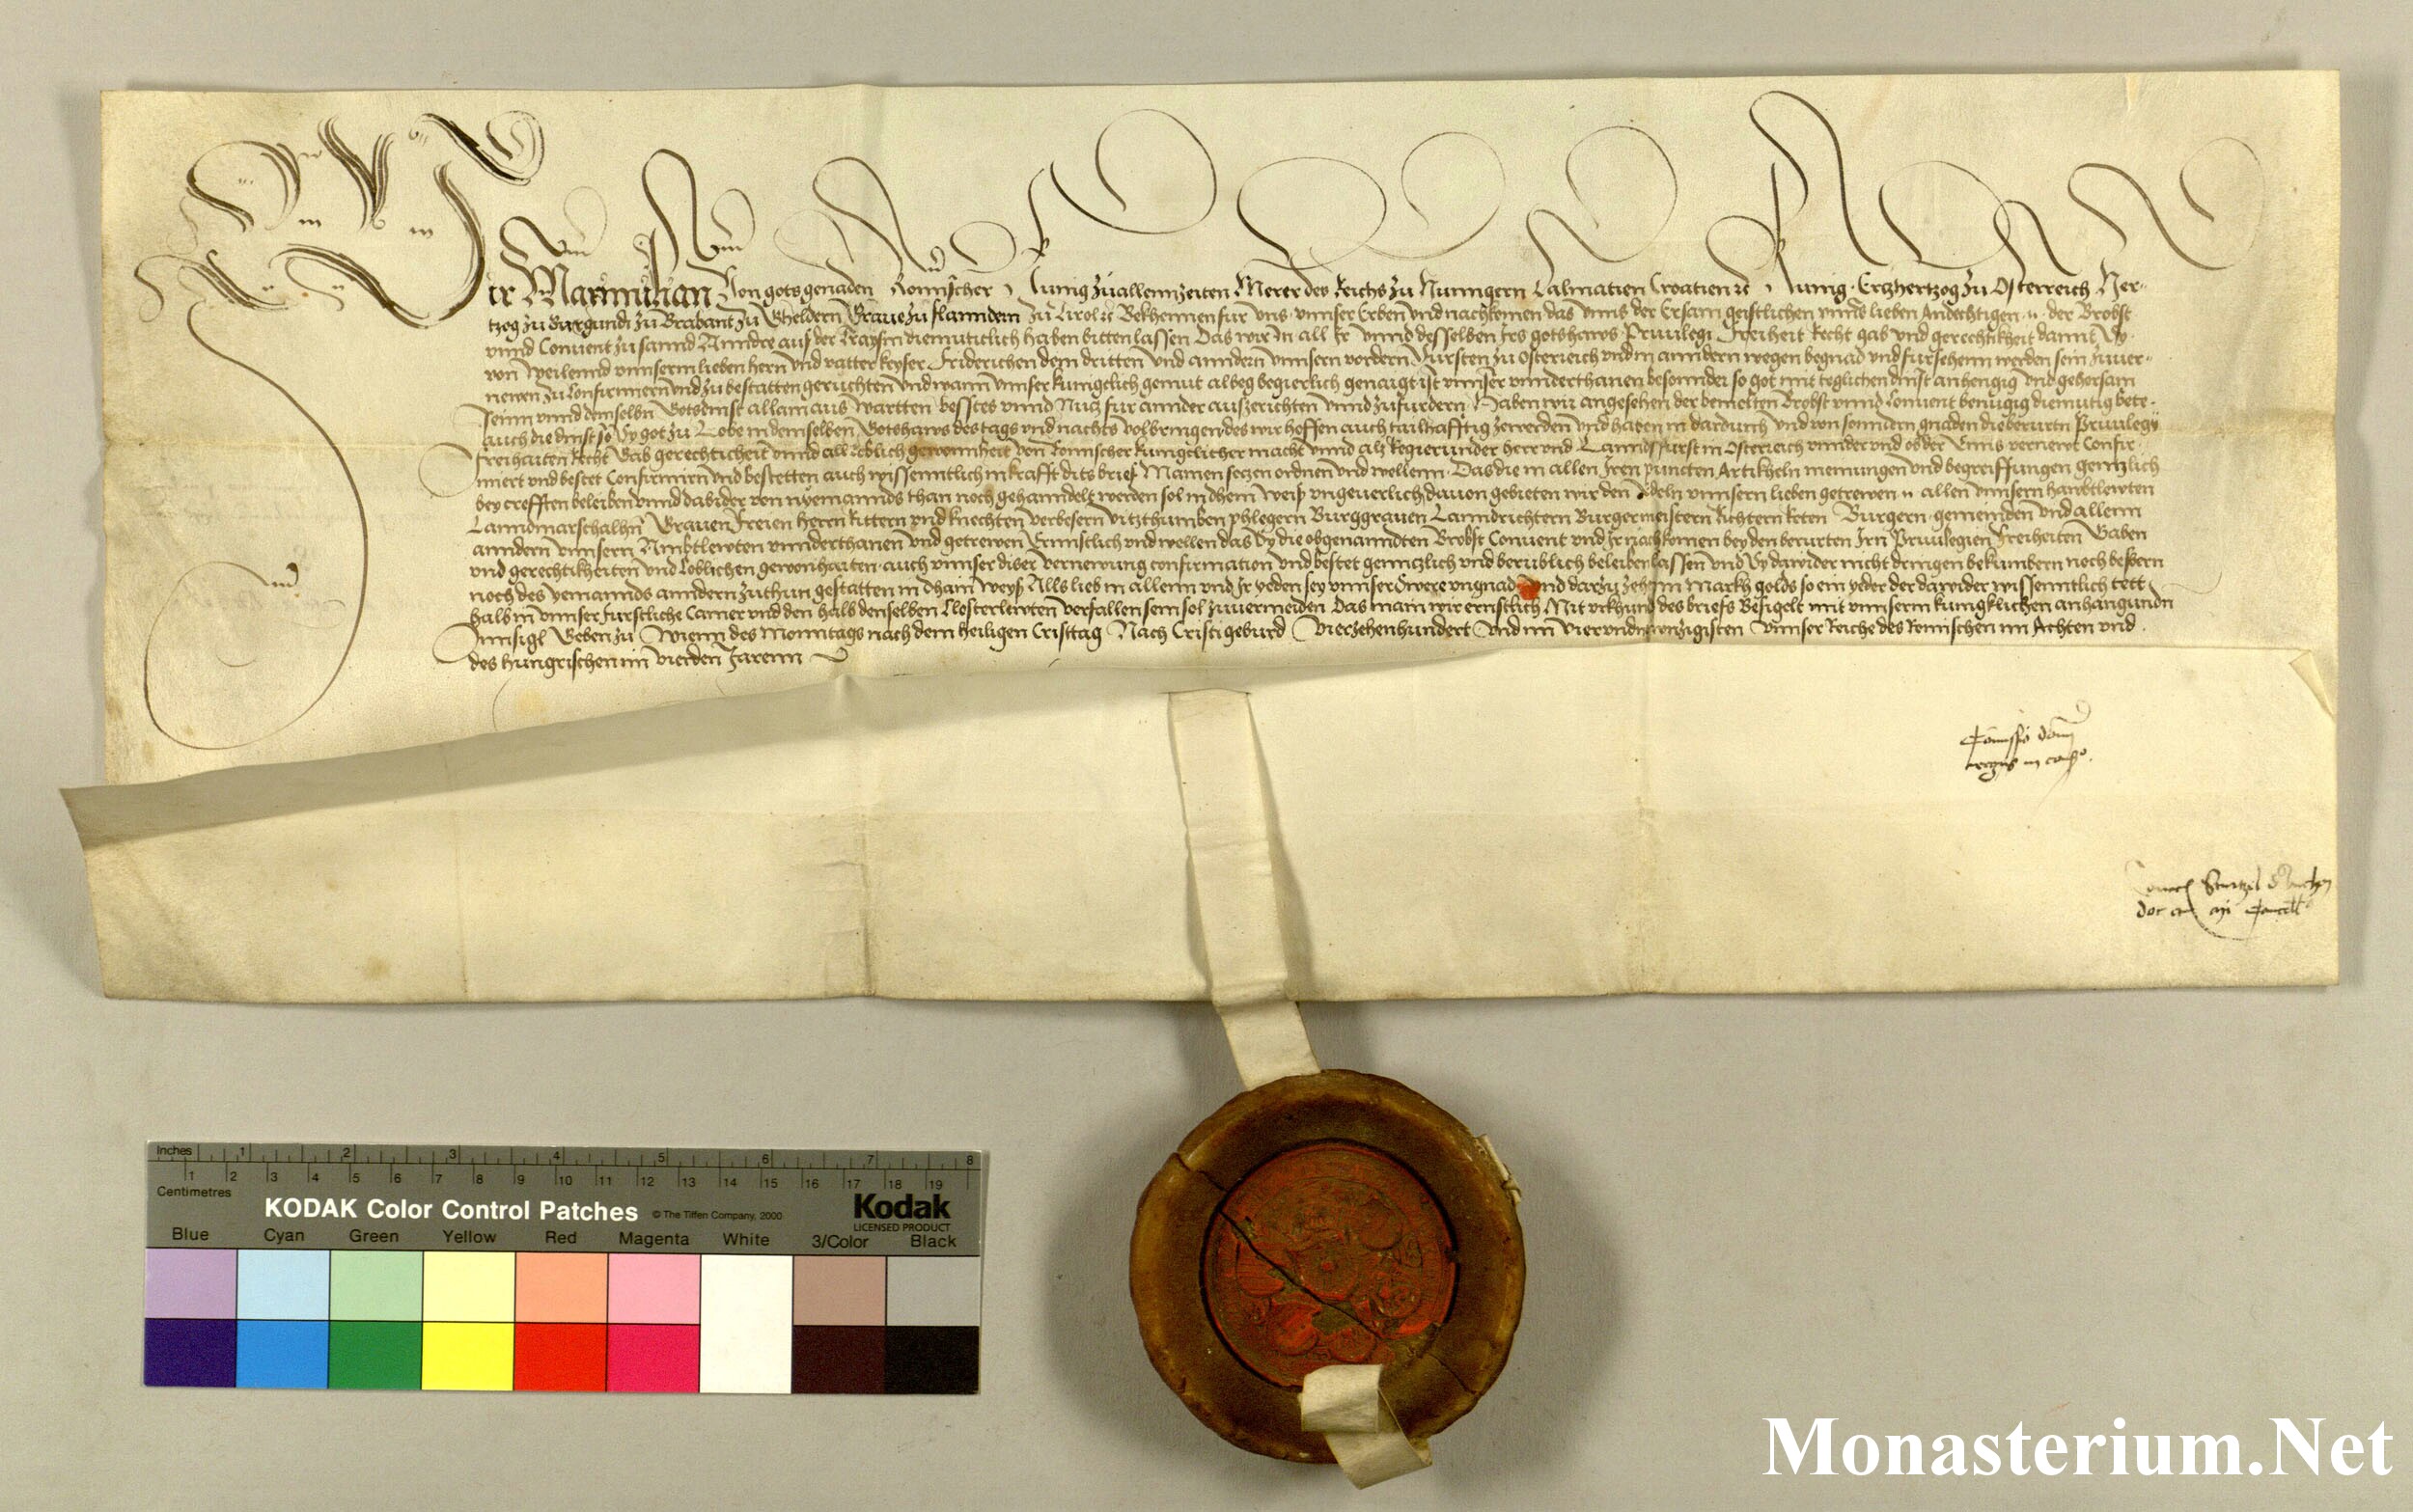 Wir Maximilian Von gots genaden Romischer Kunig zuallennzeiten Merer des Reichs zu Hunngern Dalmatien Croatien ꝛc Kunig Ertzhertzog zu Osterreich Her-
tzog zu Burgundi zu Brabant zu Gheldern Graue zu flanndern zu Tirol ꝛc Bekhennen fur vns vnnser Erben vnd nachkomen das vnns der Ersam geistlichen vnns lieben Andechtigen .n. der Brobst
vnnd Conuent zu sannd Anndre auf der Traysm diemuticlich haben bitten lassen Das wir In all Jr vnnd desselben Jrs gotshaws Priuilegi Freiheit Recht gab vnd gerechtikheit damit Sy
von Weilennd vnnserm lieben hern vnd vatter keyser Friderichen dem dritten vnd anndern vnnsern vordern Fursten zu Osterreich vnd in anndern wegen begnad vnd fursehenn werden sein zuuer-
newen zu Confirmiern vnd zu bestatten geruchten vnd wann vnnser kunigclich gemut albeg begierlich genaigt ist vnnser vnnderthanen besonnder so got mit teglichen dinst anhengig vnd gehorsam
seinn vnnd demselbn Gotsdinst allain aus wartten bestes vnnd Nutz fur annder auszerichten vnnd zufurdern Haben wir angesehen der bemelten Brobst vnnd Conuent benugig diemutig bete
auch die dinst so Sy got zu Lobe in demselben Gotshaws des tags vnd nachts volbringen des wir hoffen auch tailhafftig zewerden vnd haben in dardurch vnd von sonndern gnaden die berurtn Priuilegy
Freihaiten Recht Gab gerechticheit vnnd all loblich gewonnheit von Romischer kunigclicher macht vnnd als Regierunder herr vnd Lanndsfurst in Osterreich vnnder vnd ob der Enns vernewt Confir
miert vnd bestet Confirmirn vnd bestetten auch wissenntlich in krafft dits brief Mainen setzen ordnen vnd wellenn Das die in allen Jren puncten Artikheln meinungen vnd begreiffungen genntzlich
bey crefften beleiben vnnd dabider von nyemannds than noch gehanndelt werden sol in dhein weiß vngeuerlich dauon gebieten wir den Edeln vnnsern lieben getrewen .n. allen vnnsern haubtlewten
Lanndmarschalhn Grauen Freien herrn Rittern vnd knechten verbesern vitzthumben phlegern Burggrauen Lanndrichtern Burgermeistern Richtern Reten Burgern gemeinden vnd allenn
anndern vnnsern Ambtlewten vnnderthanen vnd getrewen Ernnstlich vnd wellen das Sy die obgenanndten Brobst Conuent vnd Jr nachkomen bey den berurten Jrn Priuilegien Freiheiten Gaben
vnd gerechtikheiten vnd loblichen gewonhaiten auch vnnser diser vernewung confirmation vnd bestet genntzlich vnd berublich beleiben lassen vnd Sy dawider nicht dringen bekumbern noch besbern
noch des yemannds anndern zuthun gestatten in dhain weyß Alls lieb in allenn vnd Jr yeden sey vnnser swere vngnad vnd darzu zehenn Markh golds so ein yder der dawider wissenntlich tett
halb in vnnser furstliche Camer vnd den halb denselben Closterlewten verfallen sein sol zuuermeiden Das main wir ernstlich Mit vrkhund des briefs Besigelt mit vnnserm kunigklichen anhangunden
Innsigl Geben zu Wienn des Monntags nach dem heiligen Cristtag Nach Cristi geburd Vierzehenhundert vnd im viervndnewnzigisten vnnser Reiche des Romischen im Achten vnd
des hungrischen im vierden Jarenn
Comissio domini
regis in consilio
Sturtzl
Inches 1 2 3 4 5 6 7 8
1 2 3 4 5 6 7 8 9 10 11 12 13 14 15 16 17 18 19
Centimetres
KODAK Color Control Patches © The Tiffen Company, 2000 Kodak
LICENSED PRODUCT
Blue Cyan Green Yellow Red Magenta White 3/Color Black
Monasterium.Net